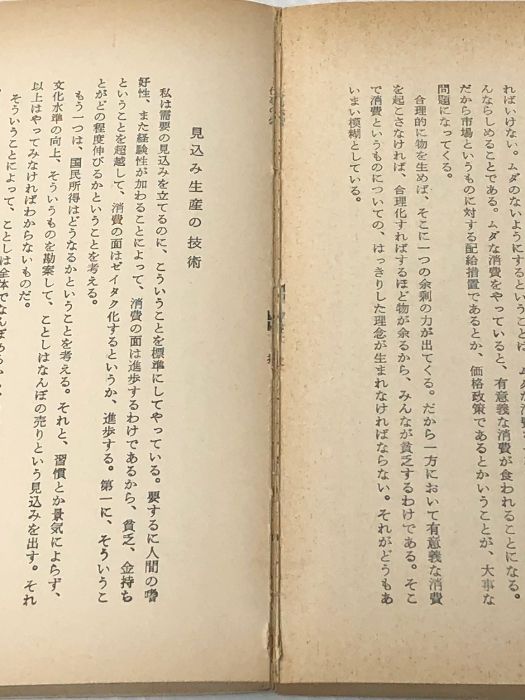 ればいけない。ムダのないようにするということは、ムダな消費を
んならしめることである。ムダな消費をやっていると、有意義な消費が食われることになる。
だから市場というものに対する配給措置であるとか、価格政策であるとかいうことが、大事な
問題になってくる。
合理的に物を生めば、そこに一つの余剰の力が出てくる。だから一方において有意義な消費
を起こさなければ、合理化すればするほど物が余るから、みんなが貧乏するわけである。そこ
で消費というものについての、はっきりした理念が生まれなければならない。それがどうもあ
いまい模糊としている。
見込み生産の技術
私は需要の見込みを立てるのに、こういうことを標準にしてやっている。要するに人間の嗜
好性、また経験性が加わることによって、消費の面は進歩するわけであるから、貧乏、金持ち
ということを超越して、消費の面はゼイタク化するというか、進歩する。第一に、そういうこ
とがどの程度伸びるかということを考える。
もう一つは、国民所得はどうなるかということを考える。それと、習慣とか景気によらず、
文化水準の向上、そういうものを勘案して、ことしはなんぼの売りという見込みを出す。それ
以上はやってみなければわからないものだ。
そういうことによって、ことしは全体でなんぼ